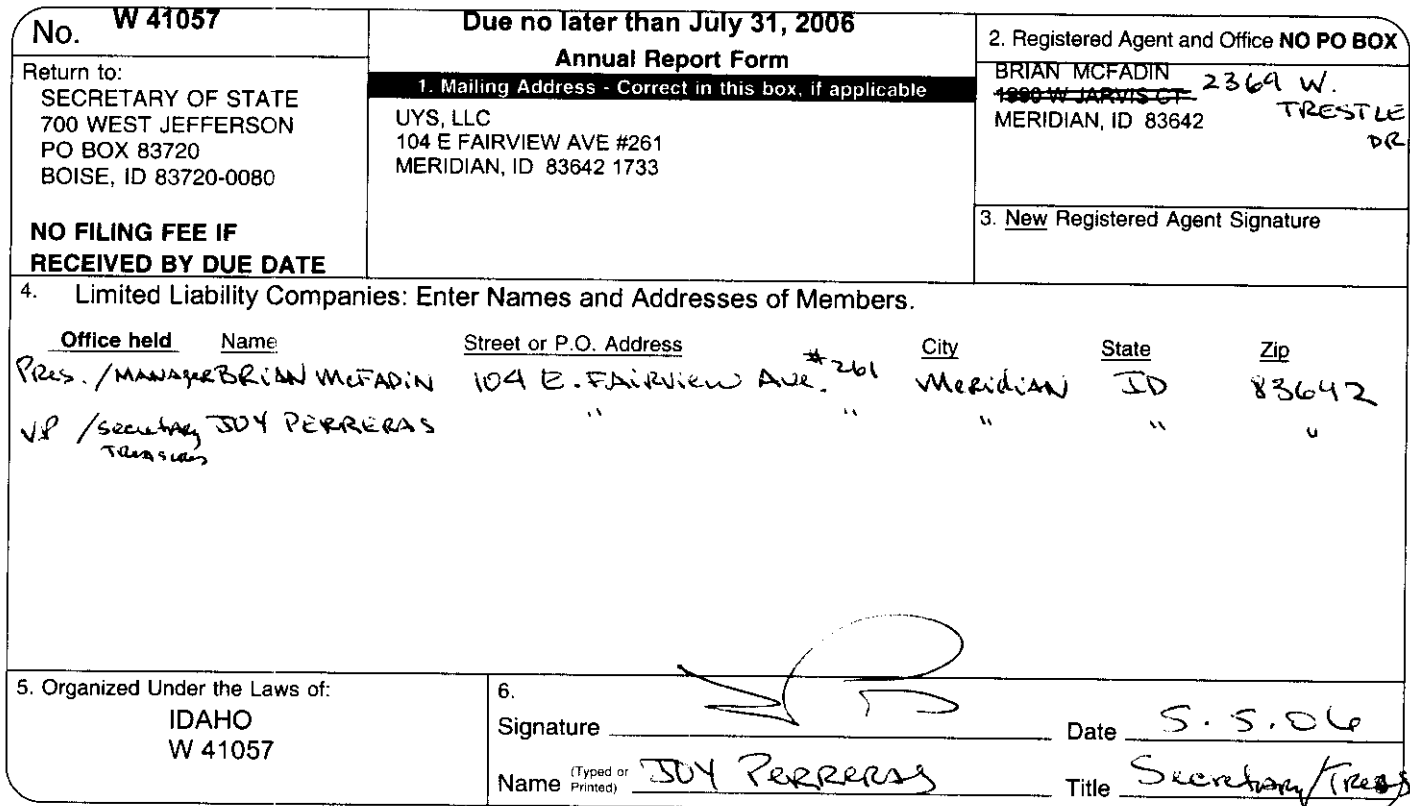 No. W 41057
Return to:
SECRETARY OF STATE
700 WEST JEFFERSON
PO BOX 83720
BOISE, ID 83720-0080
NO FILING FEE IF
RECEIVED BY DUE DATE
Due no later than July 31, 2006
Annual Report Form
1. Mailing Address - Correct in this box, if applicable
UYS, LLC
104 E FAIRVIEW AVE #261
MERIDIAN, ID 83642 1733
2. Registered Agent and Office NO PO BOX
BRIAN MCFADIN
1990 W JARVIS CT 2369 W.
TRESTLE
DR
MERIDIAN, ID 83642
3. New Registered Agent Signature
4. Limited Liability Companies: Enter Names and Addresses of Members.
Office held Name Street or P.O. Address City State Zip
Pres. / MANAGER BRIAN McFADIN 104 E. FAIRVIEW Ave. #261 Meridian ID 83642
VP / Secretary JOY PERRERAS " " " " "
Treasurer
5. Organized Under the Laws of:
IDAHO
W 41057
6.
Signature Date 5.5.06
Name (Typed or Printed) JOY PERRERAS Title Secretary/Treas